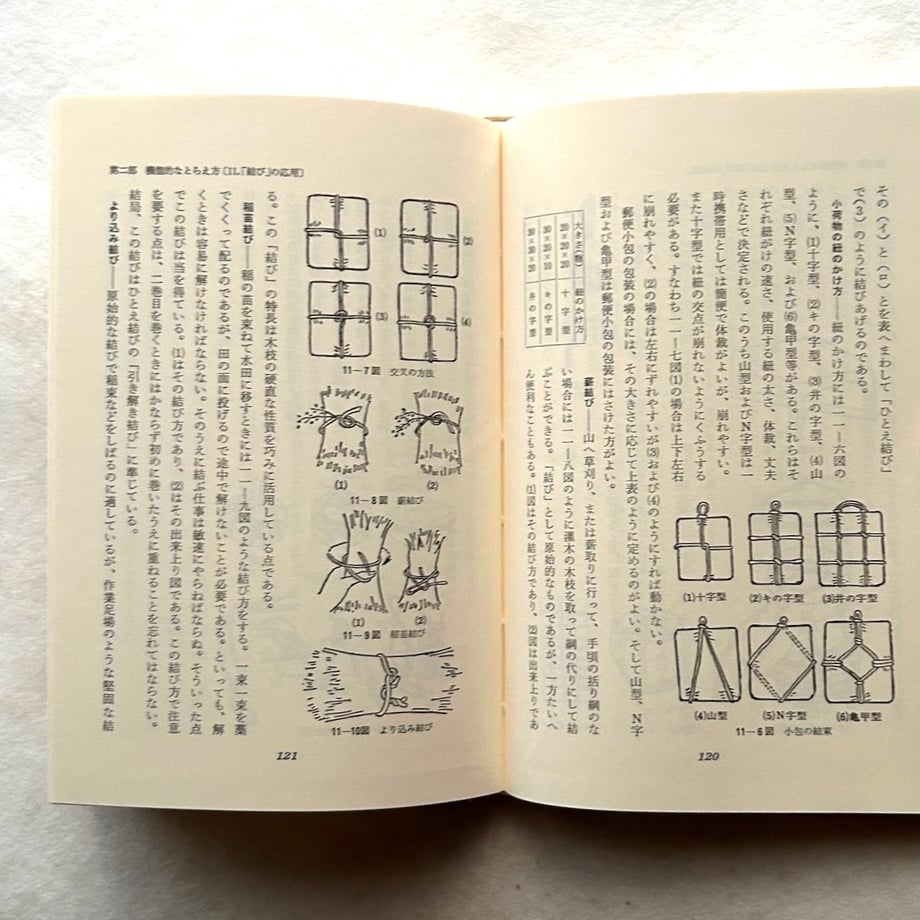 その（イ）と（ロ）とを表へまわして「ひとえ結び」
で（３）のように結びあげるのである。
小荷物の紐のかけ方――紐のかけ方には一一―六図の
ように、(1)十字型、(2)キの字型、(3)井の字型、(4)山
型、(5)N字型、および(6)亀甲型等がある。これらはそ
れぞれ紐がけの速さ、使用する紐の太さ、体裁、丈夫
さなどで決定される。このうち山型およびN字型は一
時携帯用としては簡便で体裁がよいが、崩れやすい。
また十字型では紐の交点が崩れないようにくふうする
必要がある。すなわち一一―七図(1)の場合は上下左右
に崩れやすく、(2)の場合は左右にずれやすいが(3)および(4)のようにすれば動かない。
郵便小包の包装の場合には、その大きさに応じて上表のように定めるのがよい。そして山型、N字
型および亀甲型は郵便小包の包装にはさけた方がよい。
大きさ(糎) 紐のかけ方
20×20×20 十字型
30×20×10 キの字型
30×30×20 井の字型
薪結び――山へ草刈り、または薪取りに行って、手頃の括り綱のな
い場合には一一―八図のように灌木の木枝を取って綱の代りにして結
ぶことができる。「結び」として原始的なものであるが、一方たいへ
ん便利なこともある。(1)図はその結び方であり、(2)図は出来上りであ
(1)十字型
(2)キの字型
(3)井の字型
(4)山型
(5)N字型
(6)亀甲型
11―6図 小包の結束
120
第二部 機能的なとらえ方〔11.「結び」の応用〕
(1)
(2)
(3)
(4)
11―7図 交叉の方法
(1)
(2)
11―8図 薪結び
(1)
(2)
11―9図 稲苗結び
11―10図 より込み結び
る。この「結び」の特長は木枝の硬直な性質を巧みに活用している点である。
稲苗結び――稲の苗を束ねて本田に移すときには一一―九図のような結び方をする。一束一束を藁
でくくって配るのであるが、田の面に投げるので途中で解けないことが必要である。といっても、解
くときは容易に解けなければならない。そのうえに結ぶ仕事は敏速にやらねばならぬ。そういった点
でこの結びは当を得ている。(1)はその結び方であり、(2)はその出来上り図である。この結び方で注意
を要する点は、二巻目を巻くときにはかならず初めに巻いたうえに重ねることを忘れてはならない。
結局、この結びはひとえ結びの「引き解き結び」に準じている。
より込み結び――原始的な結びで稲束などをしばるのに適しているが、作業足場のような堅固な結
121